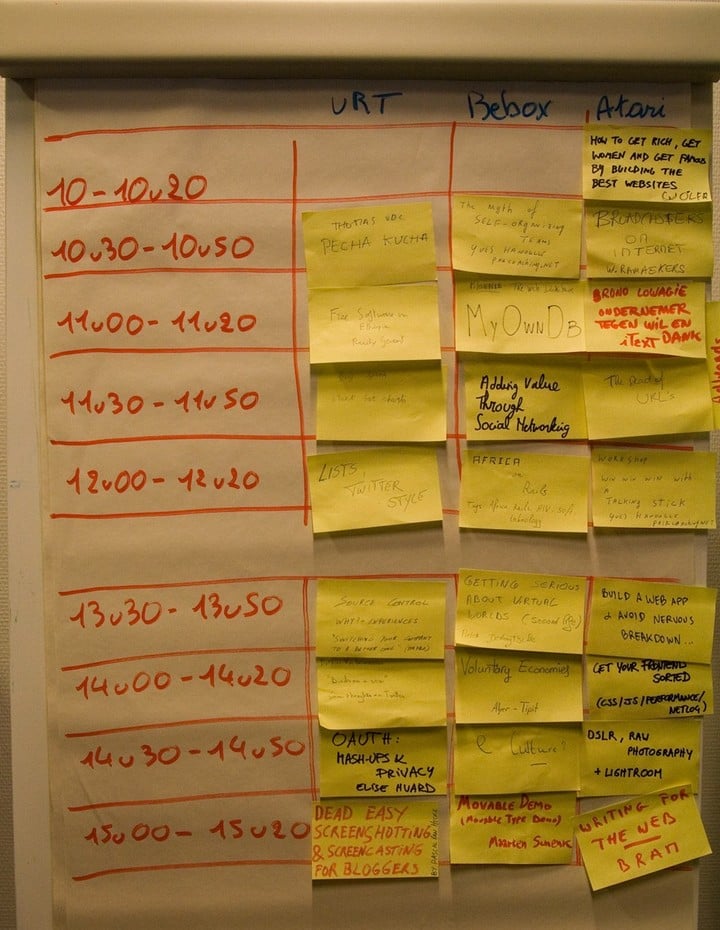 URT Bebox Atari
10-10u20
HOW TO GET RICH, GET
WOMEN AND GET FAMOUS
BY BUILDING THE
BEST WEBSITES
10u30-10u50
THOMAS VDC
PECHA KUCHA
The myth of
SELF-ORGANIZING
TEAMS
YVES HANOULLE
PAIRCOACHING.NET
BROADCASTERS
ON
INTERNET
W.RAMAEKERS
11u00-11u20
Free Software in
Ethiopia
MyOwnDB
BRUNO LOWAGIE
ONDERNEMER
TEGEN WIL EN
iText DANK
11u30-11u50
Adding Value
Through
Social Networking
The Dead of
URL's
12u00-12u20
LISTS,
TWITTER
STYLE
AFRICA
on
Rails
WORKSHOP
WIN WIN WIN WITH
A
TALKING STICK
YVES HANOULLE
PAIRCOACHING.NET
13u30-13u50
SOURCE CONTROL
WHAT? EXPERIENCES
GETTING SERIOUS
ABOUT VIRTUAL
WORLDS (Second
BUILD A WEB APP
& AVOID NERVOUS
BREAKDOWN...
14u00-14u20
Voluntary Economies
GET YOUR FRONTEND
SORTED
(CSS/JS/PERFORMANCE/
NETLOG)
14u30-14u50
OAUTH:
MASH-UPS &
PRIVACY
ELISE HUARD
e Culture?
DSLR, RAW
PHOTOGRAPHY
+ LIGHTROOM
15u00-15u20
DEAD EASY
SCREENSHOTTING
& SCREENCASTING
FOR BLOGGERS
MOVABLE DEMO
(Movable Type Demo)
Maarten
WRITING FOR
THE WEB
BRAM